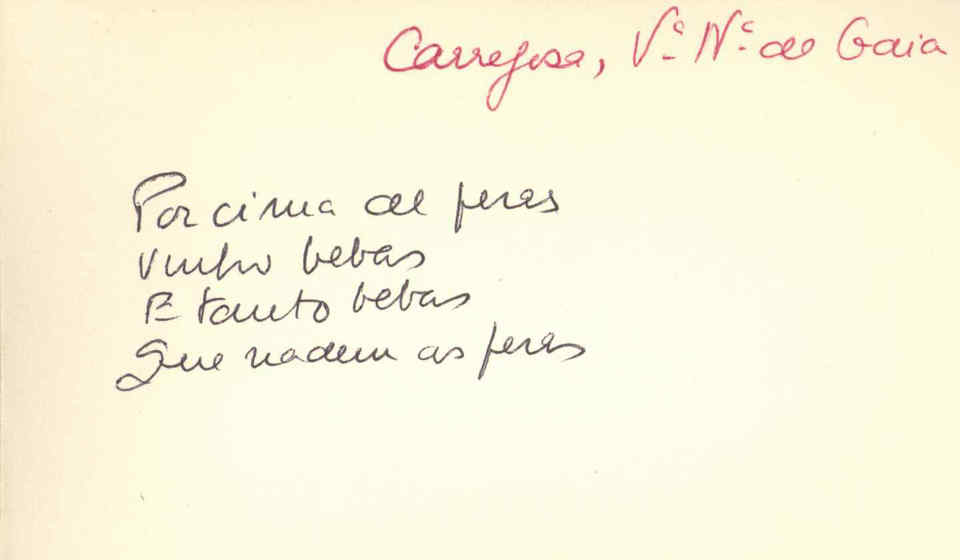 Carregosa, Vª Nª de Gaia
Por cima de peras
vinho bebas
E tanto bebas
Que nadem as peras